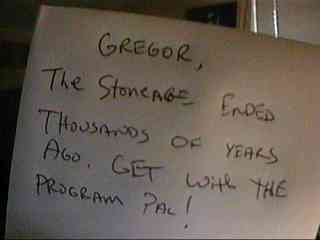 GREGOR,
The StoneAGE ENDED
THOUSANDS OF YEARS
AGO. GET WITH THE
PROGRAM PAL!